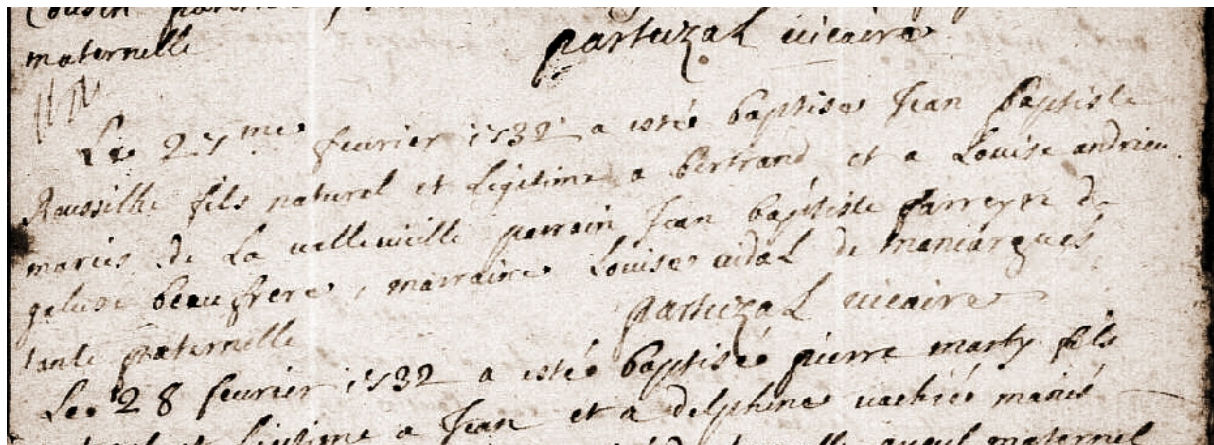 Cousin
maternelle
partuzal vicaire
Le 27me fevrier 1732 a esté baptise Jean baptiste
Roussilhe fils naturel et legitime a bertrand et a Louise andrieu
mariés de La vallevieille parrain Jean baptiste farreyre de
beaufrere, marraine Louise vidal de maniargues
tante paternelle
partuzal vicaire
Le 28 fevrier 1732 a esté baptisé pierre marty fils
a Jean et a delphine vachié mariés
maternel